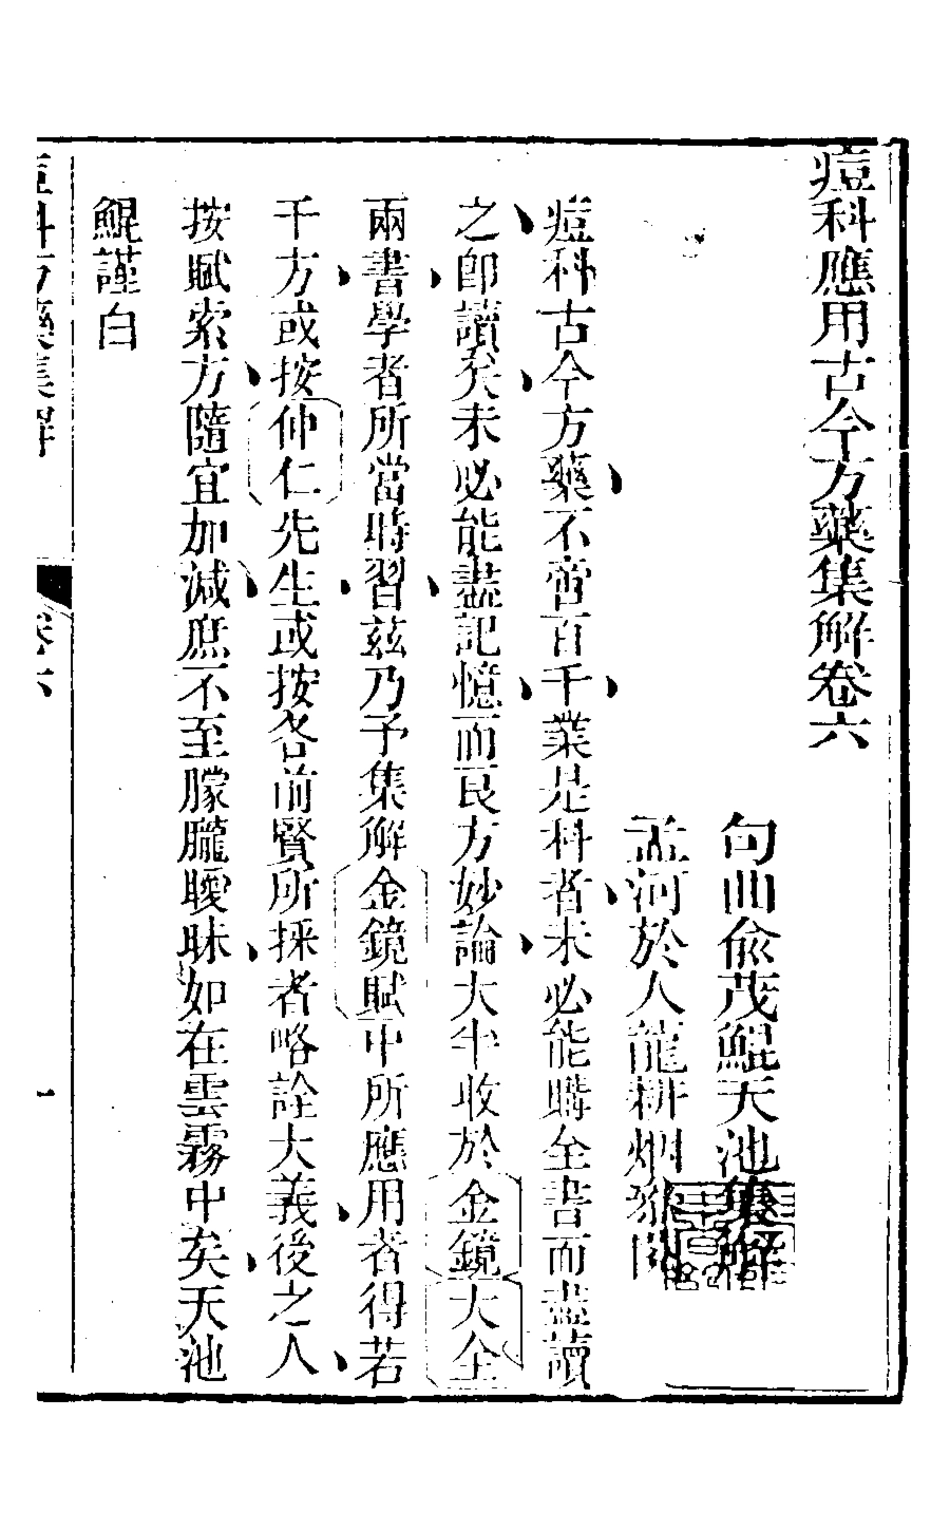 痘科應用古今方藥集解卷六
句曲俞茂鯤天池集解
孟河於人龍耕烟㕘閱
痘科古今方藥不啻百千業是科者未必能購全書而盡讀
之卽讀矣未必能盡記憶而良方妙論大半收於金鏡大全
兩書學者所當時習茲乃予集解金鏡賦中所應用者得若
干方或按仲仁先生或按各前賢所採者略詮大義後之人
按賦索方隨宜加減庶不至朦朧曖昧如在雲霧中矣天池
鯤謹白
痘科方藥集解
卷六
一